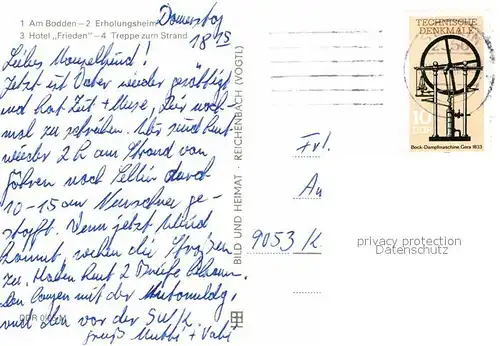 1 Am Bodden – 2 Erholungsheim
3 Hotel „Frieden" – 4 Treppe zum Strand
Donnerstag
18 15
Liebes Mauselkind!
Jetzt ist Vater wieder gesättigt
und hat Zeit + Muse, Dir noch
mal zu schreiben. Wir sind heut
wieder 2 h am Strand von
Göhren nach Sellin durch
10-15 cm Neuschnee ge-
stapft. Wenn jetzt Wind
kommt, wehen die Straßen
zu. Haben heut 2 Briefe
Den mit der
und den vor der
Gruß Mutti + Vati
BILD UND HEIMAT · REICHENBACH (VOGTL)
TECHNISCHE
DENKMALE
10
DDR
Bock-Dampfmaschine, Gera 1833
Frl.
9053 K.
privacy protection
Datenschutz